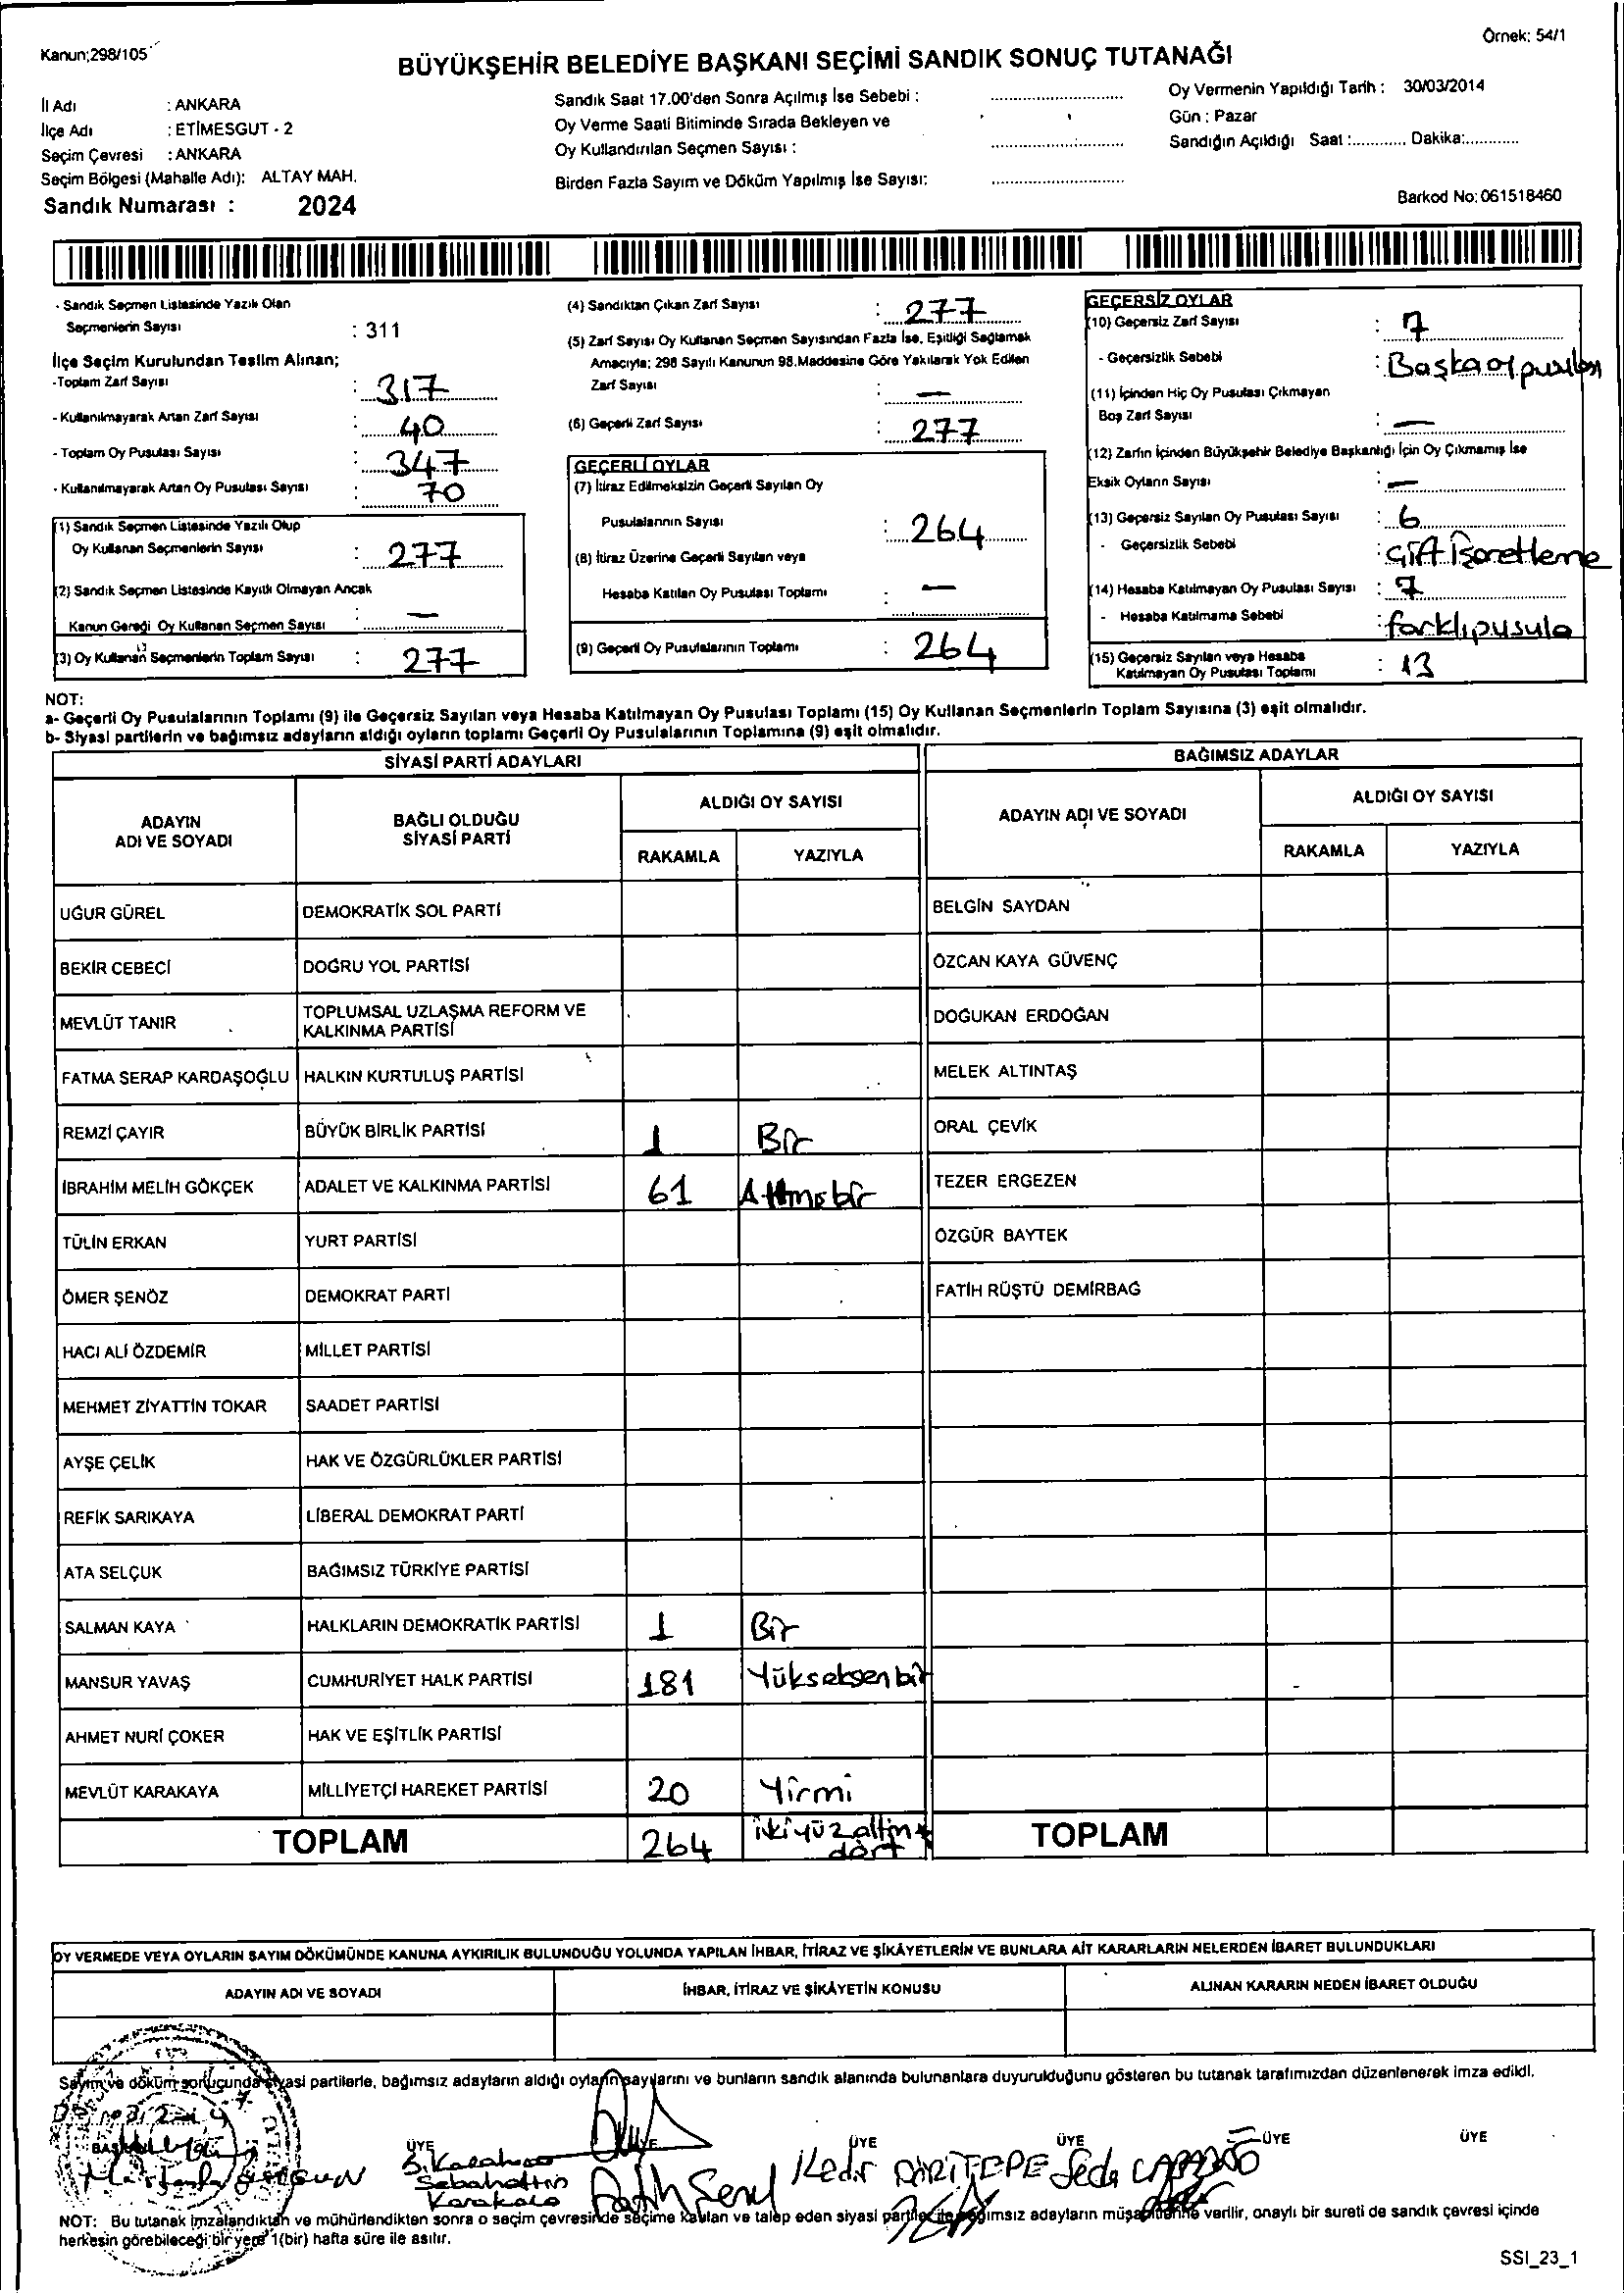 Kanun;298/105
Örnek: 54/1
BÜYÜKŞEHİR BELEDİYE BAŞKANI SEÇİMİ SANDIK SONUÇ TUTANAĞI
İl Adı : ANKARA
İlçe Adı : ETİMESGUT - 2
Seçim Çevresi : ANKARA
Seçim Bölgesi (Mahalle Adı): ALTAY MAH.
Sandık Numarası : 2024
Sandık Saat 17.00'den Sonra Açılmış İse Sebebi :
Oy Verme Saati Bitiminde Sırada Bekleyen ve
Oy Kullandırılan Seçmen Sayısı :
Birden Fazla Sayım ve Döküm Yapılmış İse Sayısı:
Oy Vermenin Yapıldığı Tarih : 30/03/2014
Gün : Pazar
Sandığın Açıldığı Saat :............ Dakika:............
Barkod No: 061518460
- Sandık Seçmen Listesinde Yazılı Olan
Seçmenlerin Sayısı : 311
İlçe Seçim Kurulundan Teslim Alınan;
-Toplam Zarf Sayısı : 317
- Kullanılmayarak Artan Zarf Sayısı : 40
- Toplam Oy Pusulası Sayısı : 347
- Kullanılmayarak Artan Oy Pusulası Sayısı : 70
(1) Sandık Seçmen Listesinde Yazılı Olup
Oy Kullanan Seçmenlerin Sayısı : 277
(2) Sandık Seçmen Listesinde Kayıtlı Olmayan Ancak
Kanun Gereği Oy Kullanan Seçmen Sayısı : —
(3) Oy Kullanan Seçmenlerin Toplam Sayısı : 277
(4) Sandıktan Çıkan Zarf Sayısı : 277
(5) Zarf Sayısı Oy Kullanan Seçmen Sayısından Fazla İse, Eşitliği Sağlamak
Amacıyla; 298 Sayılı Kanunun 98.Maddesine Göre Yakılarak Yok Edilen
Zarf Sayısı : —
(6) Geçerli Zarf Sayısı : 277
GEÇERLİ OYLAR
(7) İtiraz Edilmeksizin Geçerli Sayılan Oy
Pusulalarının Sayısı : 264
(8) İtiraz Üzerine Geçerli Sayılan veya
Hesaba Katılan Oy Pusulası Toplamı : —
(9) Geçerli Oy Pusulalarının Toplamı : 264
GEÇERSİZ OYLAR
(10) Geçersiz Zarf Sayısı : 7
- Geçersizlik Sebebi : Başka oy pusulası
(11) İçinden Hiç Oy Pusulası Çıkmayan
Boş Zarf Sayısı : —
(12) Zarfın İçinden Büyükşehir Belediye Başkanlığı İçin Oy Çıkmamış İse
Eksik Oyların Sayısı : —
(13) Geçersiz Sayılan Oy Pusulası Sayısı : 6
- Geçersizlik Sebebi : Çift İşaretleme
(14) Hesaba Katılmayan Oy Pusulası Sayısı : 7
- Hesaba Katılmama Sebebi : farklı pusula
(15) Geçersiz Sayılan veya Hesaba
Katılmayan Oy Pusulası Toplamı : 13
NOT:
a- Geçerli Oy Pusulalarının Toplamı (9) ile Geçersiz Sayılan veya Hesaba Katılmayan Oy Pusulası Toplamı (15) Oy Kullanan Seçmenlerin Toplam Sayısına (3) eşit olmalıdır.
b- Siyasi partilerin ve bağımsız adayların aldığı oyların toplamı Geçerli Oy Pusulalarının Toplamına (9) eşit olmalıdır.
SİYASİ PARTİ ADAYLARI
ADAYIN ADI VE SOYADI
BAĞLI OLDUĞU SİYASİ PARTİ
ALDIĞI OY SAYISI
RAKAMLA YAZIYLA
UĞUR GÜREL DEMOKRATİK SOL PARTİ
BEKİR CEBECİ DOĞRU YOL PARTİSİ
MEVLÜT TANIR TOPLUMSAL UZLAŞMA REFORM VE
KALKINMA PARTİSİ
FATMA SERAP KARDAŞOĞLU HALKIN KURTULUŞ PARTİSİ
REMZİ ÇAYIR BÜYÜK BİRLİK PARTİSİ 1 Bir
İBRAHİM MELİH GÖKÇEK ADALET VE KALKINMA PARTİSİ 61 Altmışbir
TÜLİN ERKAN YURT PARTİSİ
ÖMER ŞENÖZ DEMOKRAT PARTİ
HACI ALİ ÖZDEMİR MİLLET PARTİSİ
MEHMET ZİYATTİN TOKAR SAADET PARTİSİ
AYŞE ÇELİK HAK VE ÖZGÜRLÜKLER PARTİSİ
REFİK SARIKAYA LİBERAL DEMOKRAT PARTİ
ATA SELÇUK BAĞIMSIZ TÜRKİYE PARTİSİ
SALMAN KAYA HALKLARIN DEMOKRATİK PARTİSİ 1 Bir
MANSUR YAVAŞ CUMHURİYET HALK PARTİSİ 181 Yükseksenbir
AHMET NURİ ÇOKER HAK VE EŞİTLİK PARTİSİ
MEVLÜT KARAKAYA MİLLİYETÇİ HAREKET PARTİSİ 20 Yirmi
TOPLAM 264 ikiyüzaltmış
dört
BAĞIMSIZ ADAYLAR
ADAYIN ADI VE SOYADI
ALDIĞI OY SAYISI
RAKAMLA YAZIYLA
BELGİN SAYDAN
ÖZCAN KAYA GÜVENÇ
DOĞUKAN ERDOĞAN
MELEK ALTINTAŞ
ORAL ÇEVİK
TEZER ERGEZEN
ÖZGÜR BAYTEK
FATİH RÜŞTÜ DEMİRBAĞ
TOPLAM
OY VERMEDE VEYA OYLARIN SAYIM DÖKÜMÜNDE KANUNA AYKIRILIK BULUNDUĞU YOLUNDA YAPILAN İHBAR, İTİRAZ VE ŞİKÂYETLERİN VE BUNLARA AİT KARARLARIN NELERDEN İBARET BULUNDUKLARI
ADAYIN ADI VE SOYADI
İHBAR, İTİRAZ VE ŞİKÂYETİN KONUSU
ALINAN KARARIN NEDEN İBARET OLDUĞU
Sayım ve döküm sonucunda siyasi partilerle, bağımsız adayların aldığı oyların sayılarını ve bunların sandık alanında bulunanlara duyurulduğunu gösteren bu tutanak tarafımızdan düzenlenerek imza edildi.
BAŞKAN ÜYE ÜYE ÜYE ÜYE ÜYE ÜYE
S. Karakoca
Sabahattin
Karakoca
Fatih Şenol
Kadir DARITEPE
Seda
NOT: Bu tutanak imzalandıktan ve mühürlendikten sonra o seçim çevresinde seçime katılan ve talep eden siyasi partiler ile bağımsız adayların müşahitlerine verilir, onaylı bir sureti de sandık çevresi içinde
herkesin görebileceği bir yere 1(bir) hafta süre ile asılır.
SSI_23_1